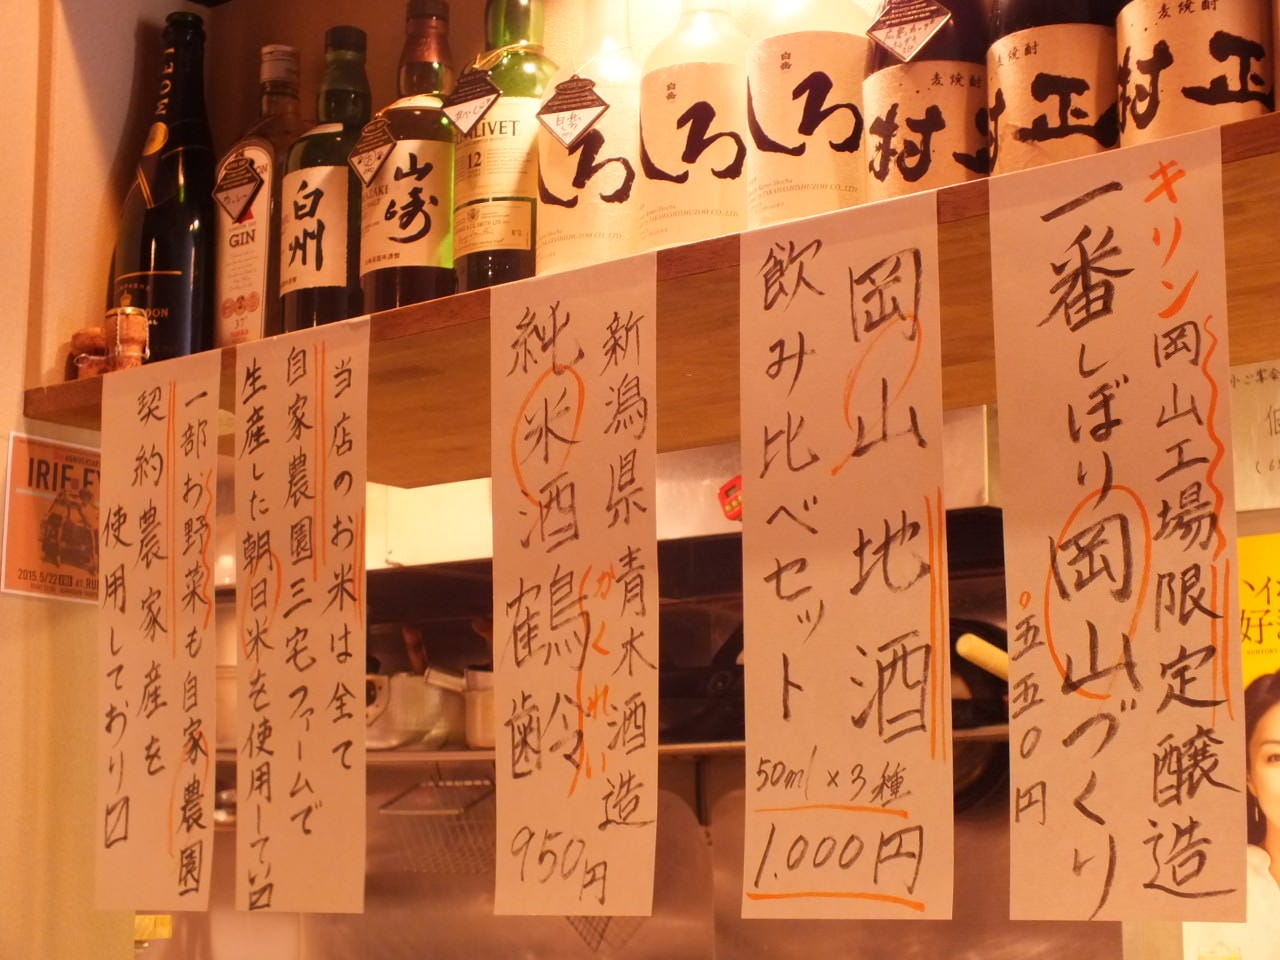 キリン岡山工場限定醸造
一番しぼり岡山づくり
五五〇円
岡山地酒
飲み比べセット
50ml×3種
1.000円
新潟県青木酒造
純米酒鶴齢
かくれい
950円
当店のお米は全て
自家農園三宅ファームで
生産した朝日米を使用してい〼
一部お野菜も自家農園
契約農家産を
使用しており〼
MOËT
GIN
37
白州
山崎
LIVET
12
白岳
しろ
白岳
しろ
しろ
麦焼酎
村
麦焼酎
正
麦焼酎
村正
IRIE
2015.5/22